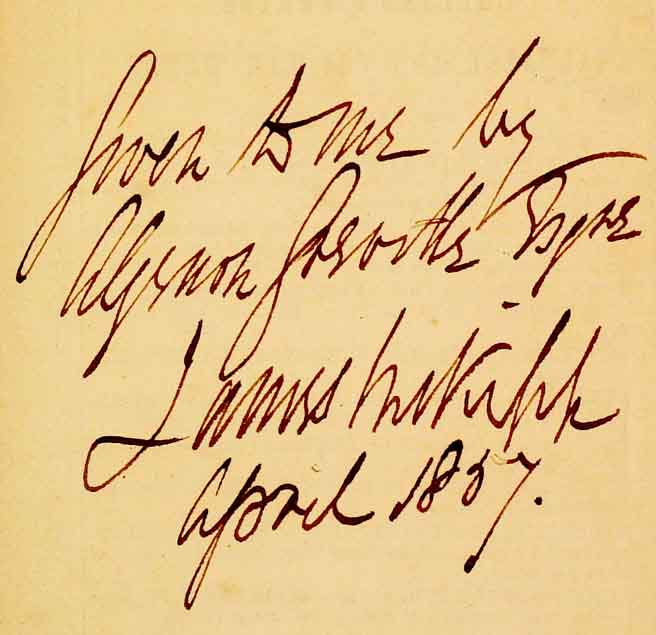 Given to me by
Algernon Greville Esqre
James
April 1857.